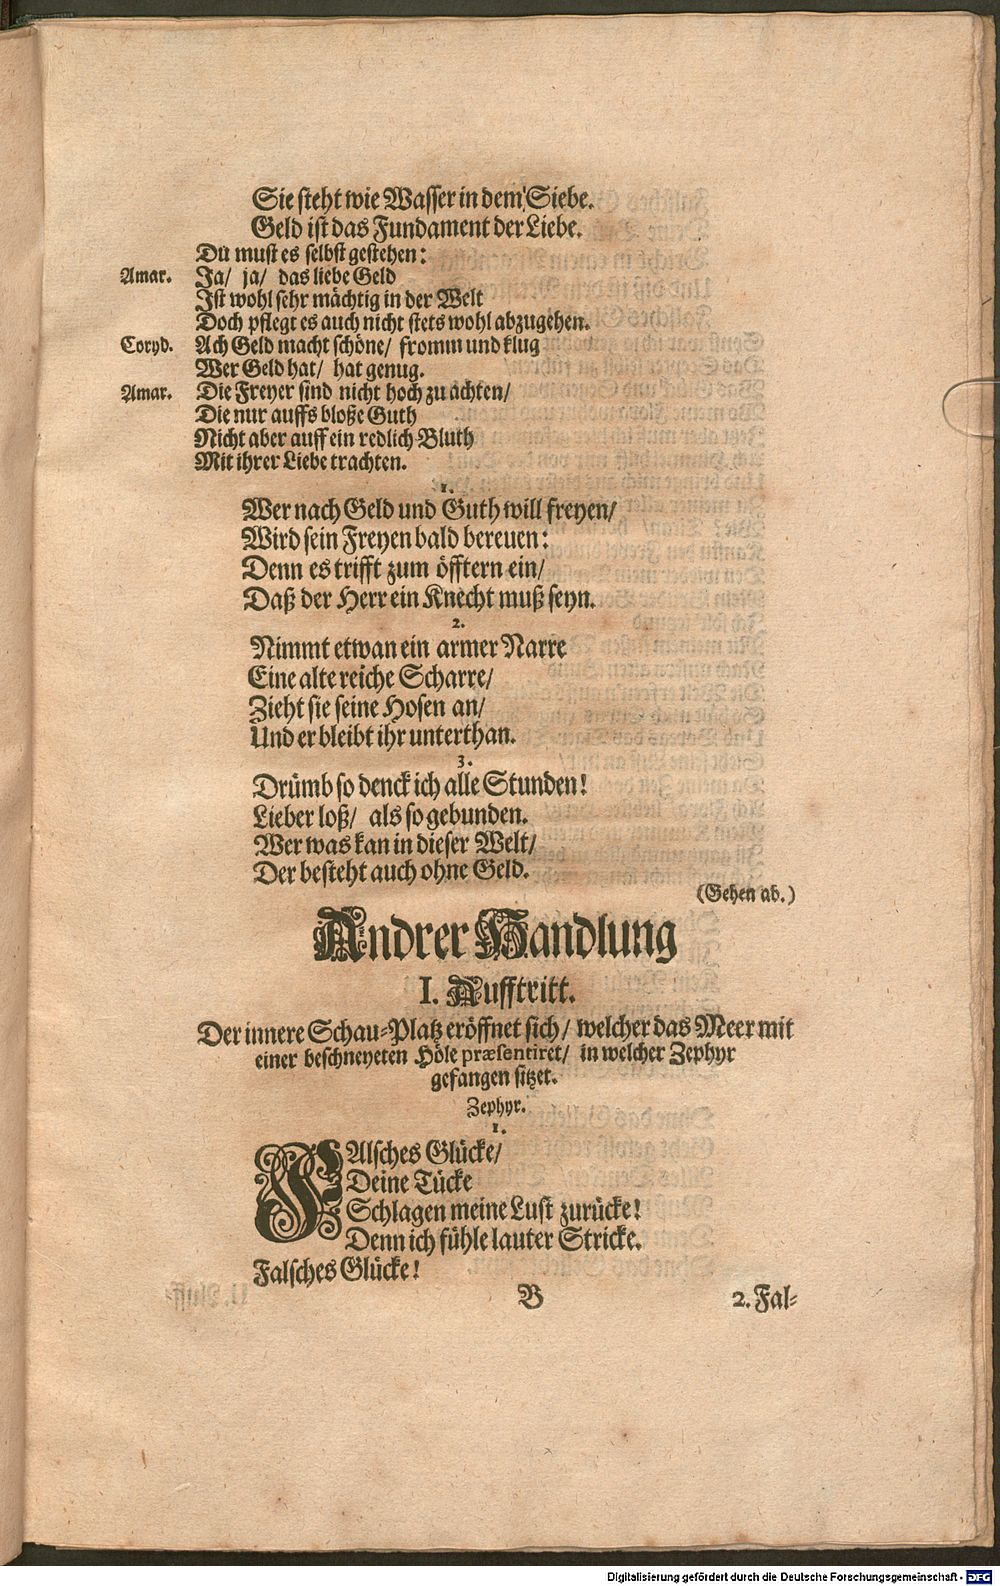 Sie steht wie Wasser in dem Siebe.
Geld ist das Fundament der Liebe.
Du must es selbst gestehen:
Amar. Ja/ ja/ das liebe Geld
Ist wohl sehr mächtig in der Welt
Doch pflegt es auch nicht stets wohl abzugehen.
Coryd. Ach Geld macht schöne/ fromm und klug
Wer Geld hat/ hat genug.
Amar. Die Freyer sind nicht hoch zu achten/
Die nur auffs bloße Guth
Nicht aber auff ein redlich Bluth
Mit ihrer Liebe trachten.
1.
Wer nach Geld und Guth will freyen/
Wird sein Freyen bald bereuen:
Denn es trifft zum öfftern ein/
Daß der Herr ein Knecht muß seyn.
2.
Nimmt etwan ein armer Narre
Eine alte reiche Scharre/
Zieht sie seine Hosen an/
Und er bleibt ihr unterthan.
3.
Drümb so denck ich alle Stunden!
Lieber loß/ als so gebunden.
Wer was kan in dieser Welt/
Der besteht auch ohne Geld.
(Gehen ab.)
Andrer Handlung
I. Aufftritt.
Der innere Schau-Platz eröffnet sich/ welcher das Meer mit
einer beschneyeten Höle præsentiret/ in welcher Zephyr
gefangen sitzet.
Zephyr.
1.
FAlsches Glücke/
Deine Tücke
Schlagen meine Lust zurücke!
Denn ich fühle lauter Stricke.
Falsches Glücke!
B 2. Fal-
Digitalisierung gefördert durch die Deutsche Forschungsgemeinschaft - DFG